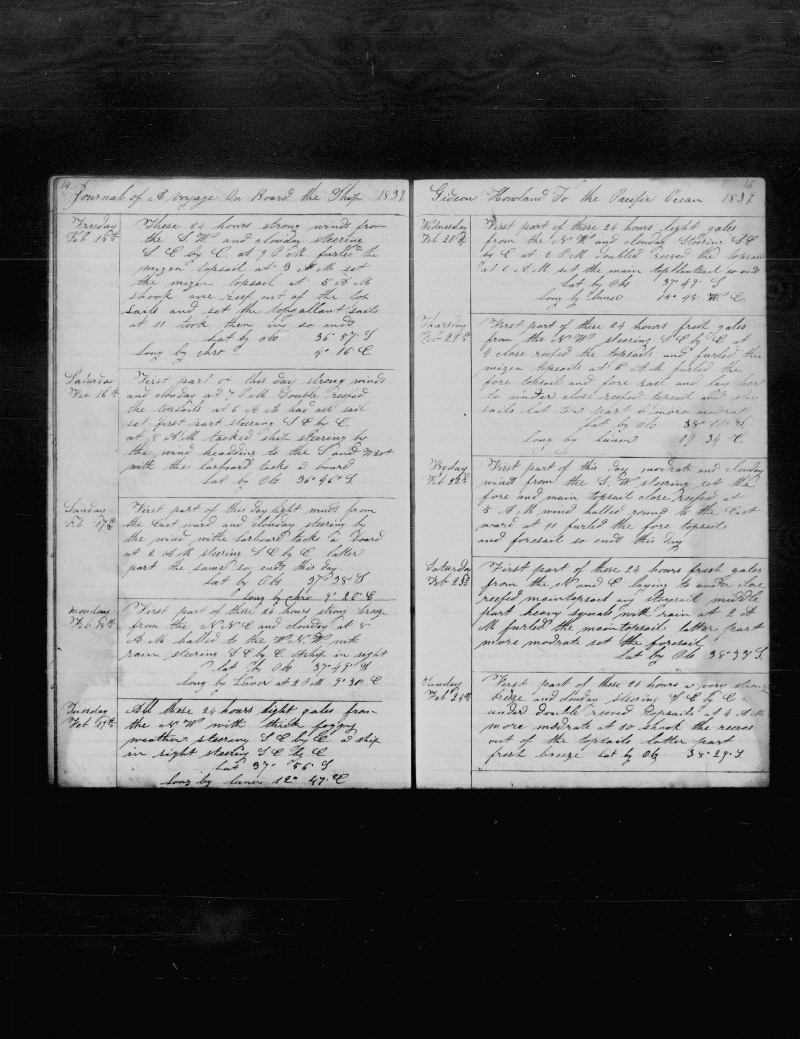 14
Journal of A voyage On Board the Ship 1839
Fryday
Feb 15th
These 24 hours strong winds from
the S. W and clouday steering
S E by E. at 9 P M furled the
mizen topsail at 3 A M set
the mizen topsail at 5 A M
shook one reef out of the top
sails and set the topgallant sails
at 11 took them in so ends
Lat by Obs 36° 57' S
Long by chro 9° 16' E
Saturday
Feb 16th
First part of this day strong winds
and clouday at 7 P M Double reefed
the topsails at 6 A M had all sail
set first part steering S E by E.
at 8 A M tacked ship steering by
the wind heading to the S and West
with the larboard tacks a board
Lat by Obs 36° 46' S
Sunday
Feb 17th
First part of this day light winds from
the East ward and clouday steering by
the wind with larboard tacks a board
at 2 A M steering S E by E latter
part the same so ends this day
Lat by Obs 37° 38' S
Long by chro 9° 20' E
Monday
Feb 18th
First part of these 24 hours strong breeze
from the N. N. E and clouday at 8
A M halled to the W. N. W with
rain steering S E by E. A ship in sight
Lat by Obs 37° 48' S
Long by Luner at 2 P M 9° 30' E
Tuesday
Feb 19th
All these 24 hours light gales from
the N W with thick foggy
weather steering S E by E a ship
in sight steering S E by E
Lat 37° 56' S
Long by luner 12° 47' E
15
Gideon Howland To the Pacific Ocean 1839
Wednesday
Feb 20th
First part of these 24 hours light gales
from the N W and clouday Steering S E
by E at 2 P M doubled reefed the topsails
at 6 A M. set the main so ends
Lat by Obs 37° 49' S
Long by luner 15° 48' E.
Thursday
Feb 21st
First part of these 24 hours fresh gales
from the N W steering S E by E at
4 close reefed the topsails and furled the
mizen topsails at 8 A M furled the
fore topsail and fore sail and lay her
to under close reefed topsail and
sails later part 6 more modrat
Lat by Obs 38° S
Long by Luner 19° 34' E
Fryday
Feb 22th
First part of this day modrate and clouday
winds from the S. W steering set the
fore and main topsail close reefed at
5 A M wind halled round to the East
ward at 11 furled the fore topsails
and foresail so ends this day
Saturday
Feb 23th
First part of these 24 hours fresh gales
from the N and E laying to under close
reefed maintopsail and staysail middle
part heavy squals with rain at 2 A
M furled the maintopsail latter part
more modrate set the foresail
Lat by Obs 38° 33' S.
Sunday
Feb 24th
First part of these 24 hours a very strong
breeze and clouday steering S E by E
under double reeved topsails at 4 A M
more modrate at 10 shook the reeves
out of the topsails latter part
fresh breeze Lat by Obs 38° 29' S.